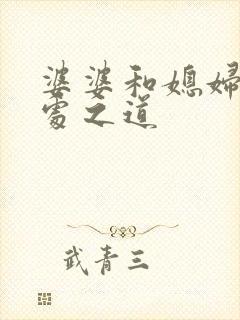 婆婆和媳婦
處之道
武青三